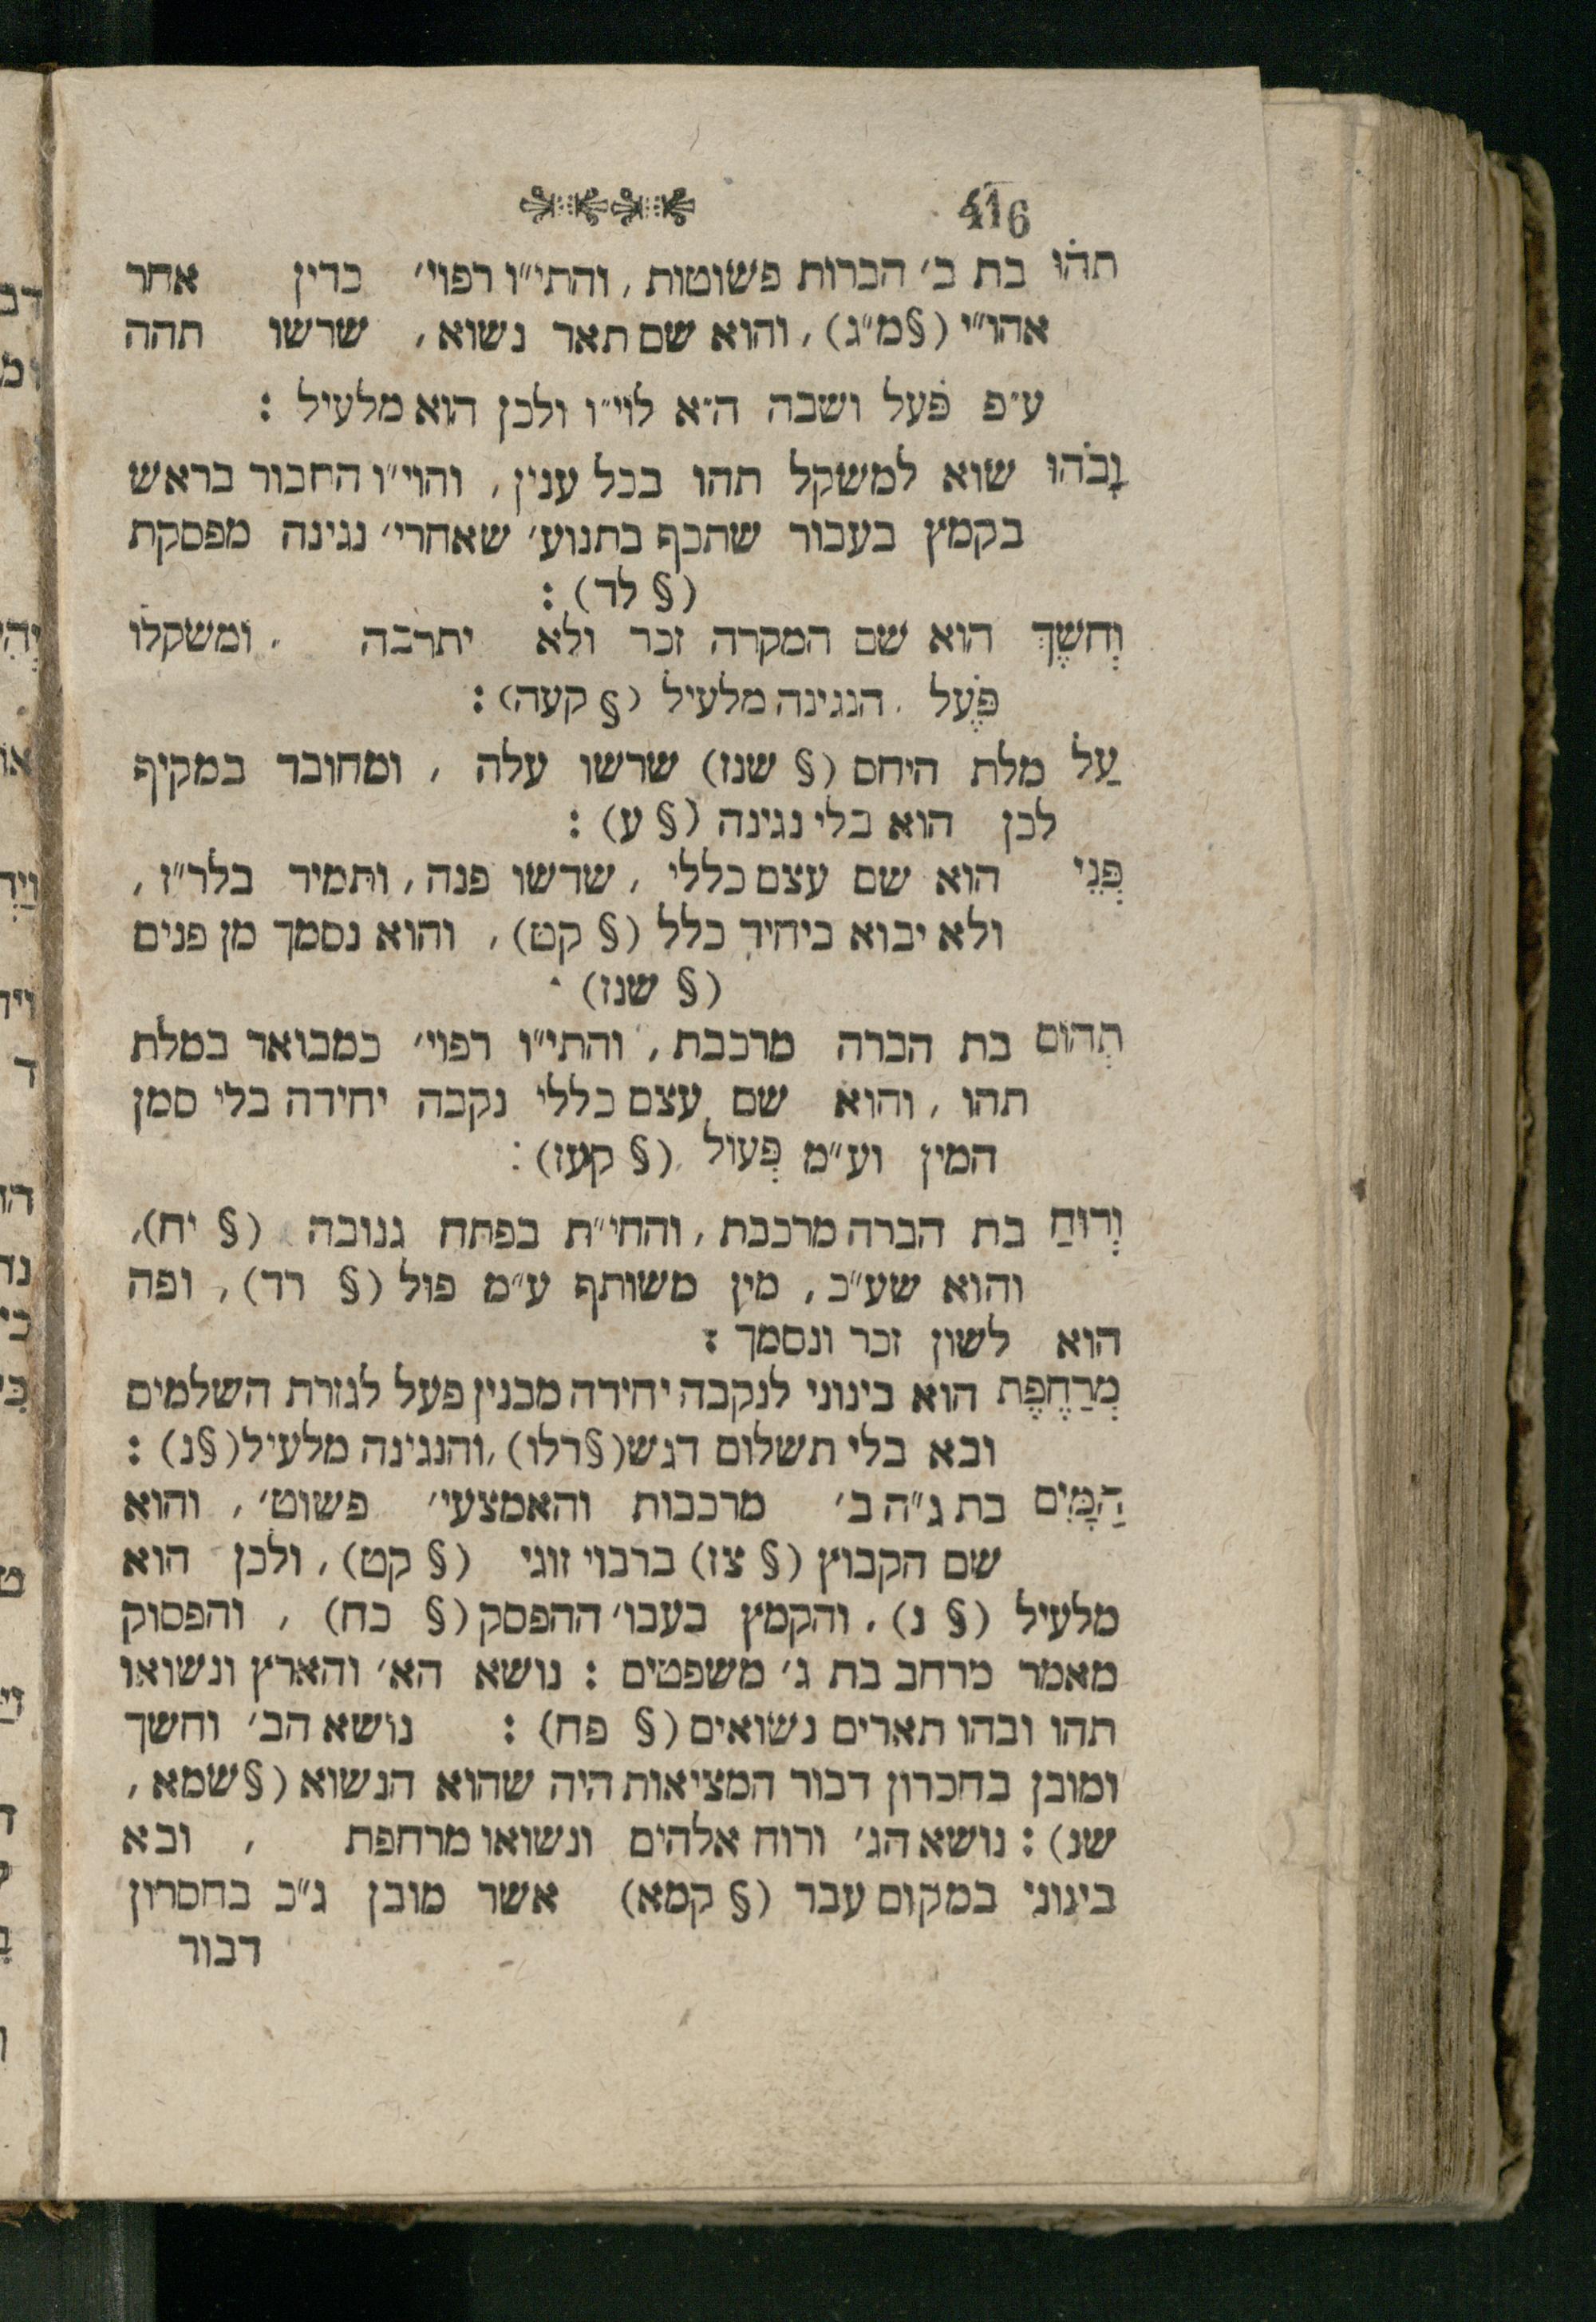 416
תהוּ בת ב׳ הברות פשוטות, והתי״ו רפוי׳ כדין אחר
אהו״י (§מ״ג), והוא שם תאר נשוא, שרשו תהה
ע״פ פֹעל ושבה ה״א לוי״ו ולכן הוא מלעיל :
וָבֹהוּ שוא למשקל תהו בכל ענין, והוי״ו החבור בראש
בקמץ בעבור שתכף בתנוע׳ שאחרי׳ נגינה מפסקת
(§ לד) :
וְחשֶׁךְ הוא שם המקרה זכר ולא יתרבה . ומשקלו
פֹּעֶל . הנגינה מלעיל (§ קעה) :
עַל מלת היחס (§ שנז) שרשו עלה , ומחובר במקיף
לכן הוא בלי נגינה (§ ע) :
פְּנֵי הוא שם עצם כללי , שרשו פנה, ותמיד בלר״ז,
ולא יבוא ביחיד כלל (§ קט), והוא נסמך מן פנים
(§ שנז) ·
תְהוֹם בת הברה מרכבת, והתי״ו רפוי׳ כמבואר במלת
תהו , והוא שם עצם כללי נקבה יחידה בלי סמן
המין וע״מ פְּעוֹל (§ קעז) :
וְרוּחַ בת הברה מרכבת, והחי״ת בפתח גנובה (§ יח),
והוא שע״כ, מין משותף ע״מ פוּל (§ רד), ופה
הוא לשון זכר ונסמך :
מְרַחֶפֶת הוא בינוני לנקבה יחידה מבנין פעל לגזרת השלמים
ובא בלי תשלום דגש (§רלו), והנגינה מלעיל (§נ) :
הַמָּיִם בת ג״ה ב׳ מרכבות והאמצעי׳ פשוט׳, והוא
שם הקבוץ (§ צז) ברבוי זוגי (§ קט), ולכן הוא
מלעיל (§ נ), והקמץ בעבו׳ ההפסק (§ כח) , והפסוק
מאמר מרחב בת ג׳ משפטים : נושא הא׳ והארץ ונשואו
תהו ובהו תארים נשואים (§ פח) : נושא הב׳ וחשך
ומובן בחכרון דבור המציאות היה שהוא הנשוא (§שמא,
שנ) : נושא הג׳ ורוח אלהים ונשואו מרחפת , ובא
בינוני במקום עבר (§ קמא) אשר מובן ג״כ בחסרון
דבור